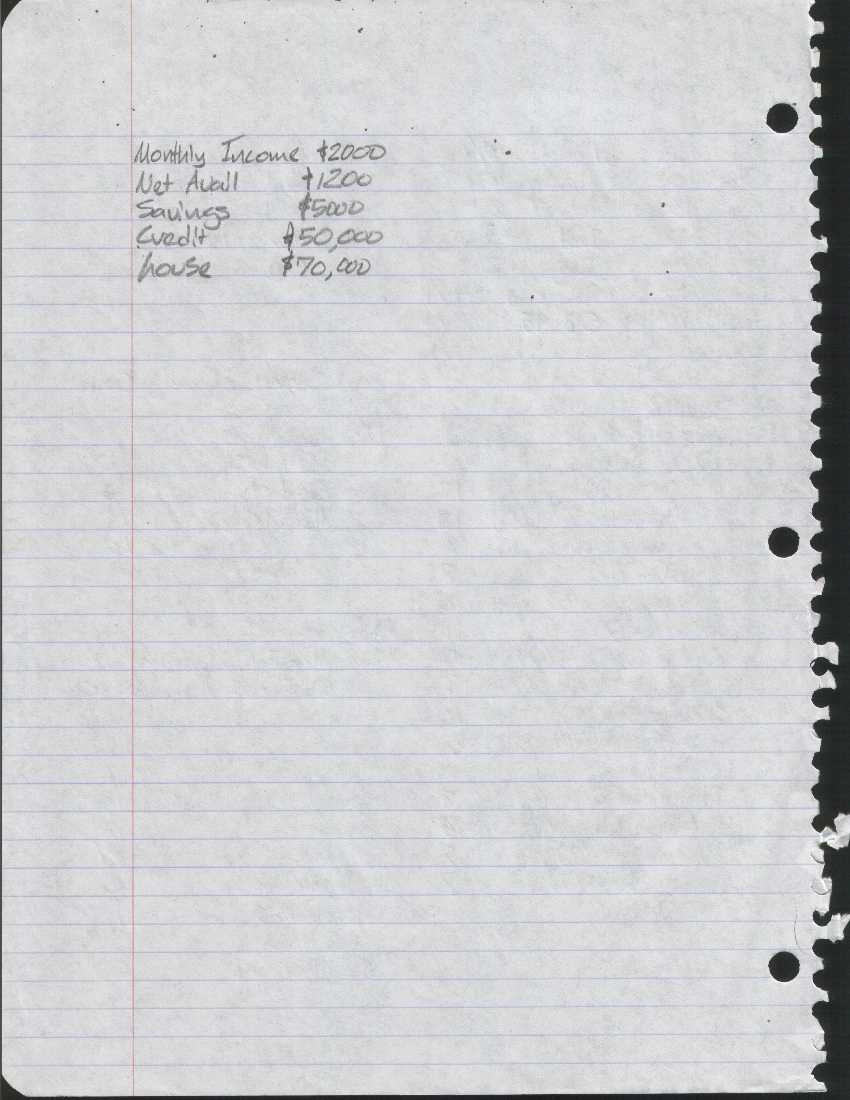 Monthly Income $2000
Net Avail $1200
Savings $5000
Credit $50,000
house $70,000